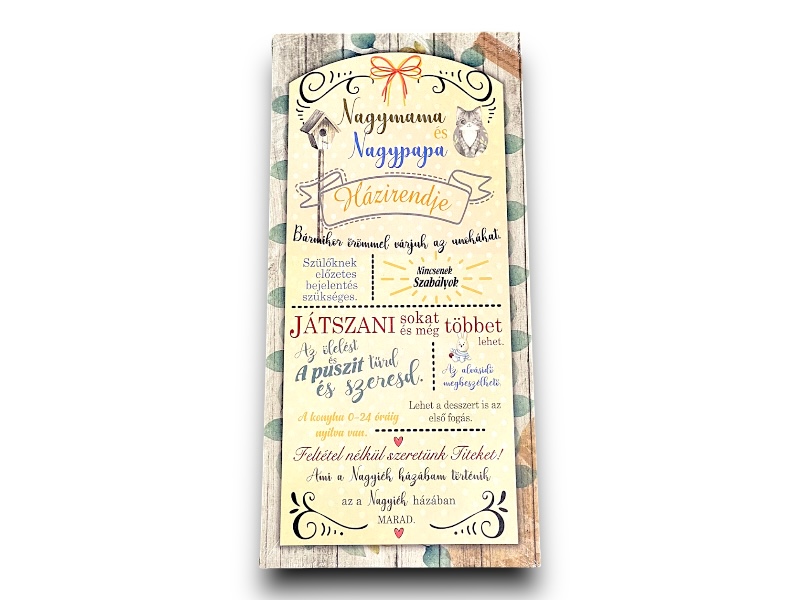 Nagymama
és
Nagypapa
Házirendje
Bármikor örömmel várjuk az unokákat.
Szülőknek
előzetes
bejelentés
szükséges.
Nincsenek
Szabályok
JÁTSZANI sokat és még többet
lehet.
Az ölelést
és
A puszit tűrd
és szeresd.
Az alvásidő
megbeszélhető.
A konyha 0-24 óráig
nyitva van.
Lehet a desszert is az
első fogás.
Feltétel nélkül szeretünk Titeket!
Ami a Nagyiék házában történik
az a Nagyiék házában
MARAD.